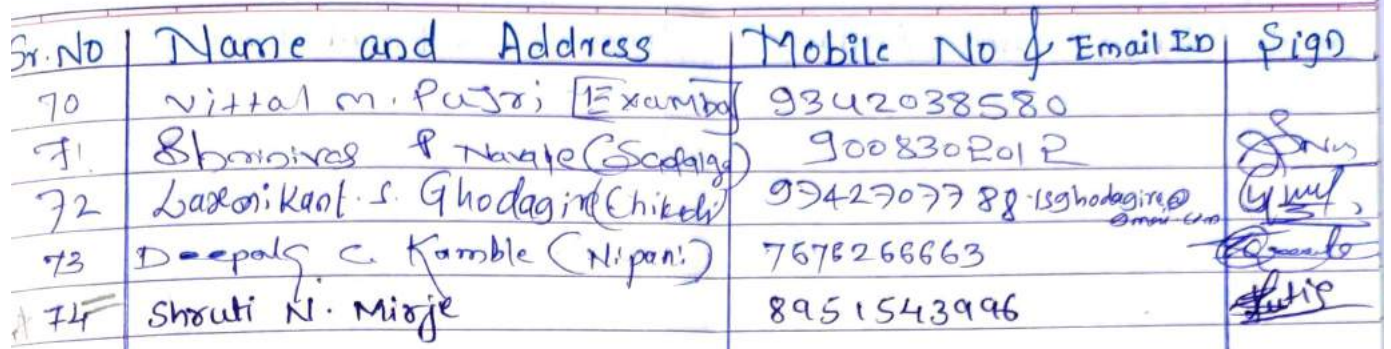 Sr. No Name and Address Mobile No & Email ID Sign
70 Vittal M. Pujri [Examba] 9342038580
71 Shrinivas P Navale (Sadalga) 9008302012
72 Laxmikant. S. Ghodagire (Chikodi) 9942707788 lsghodagire@
gmail.com
73 Deepak C. Kamble (Nipani) 7676266663
74 Shruti N. Mirje 8951543996